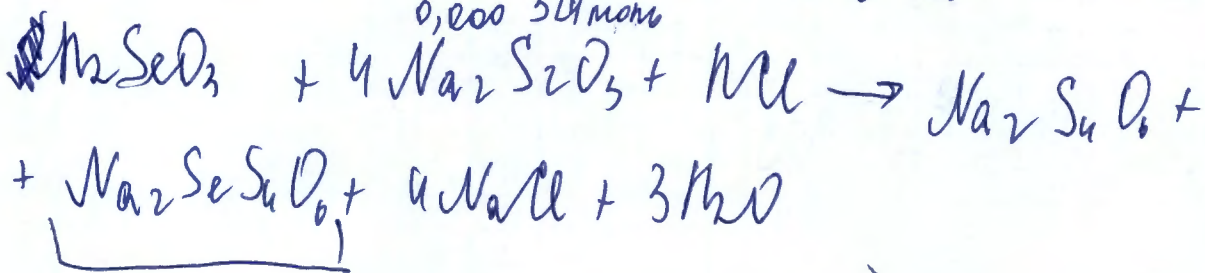 0,000 524 моль
H₂SeO₃ + 4 Na₂S₂O₃ + HCl → Na₂S₄O₆ +
+ Na₂SeS₄O₆ + 4NaCl + 3H₂O